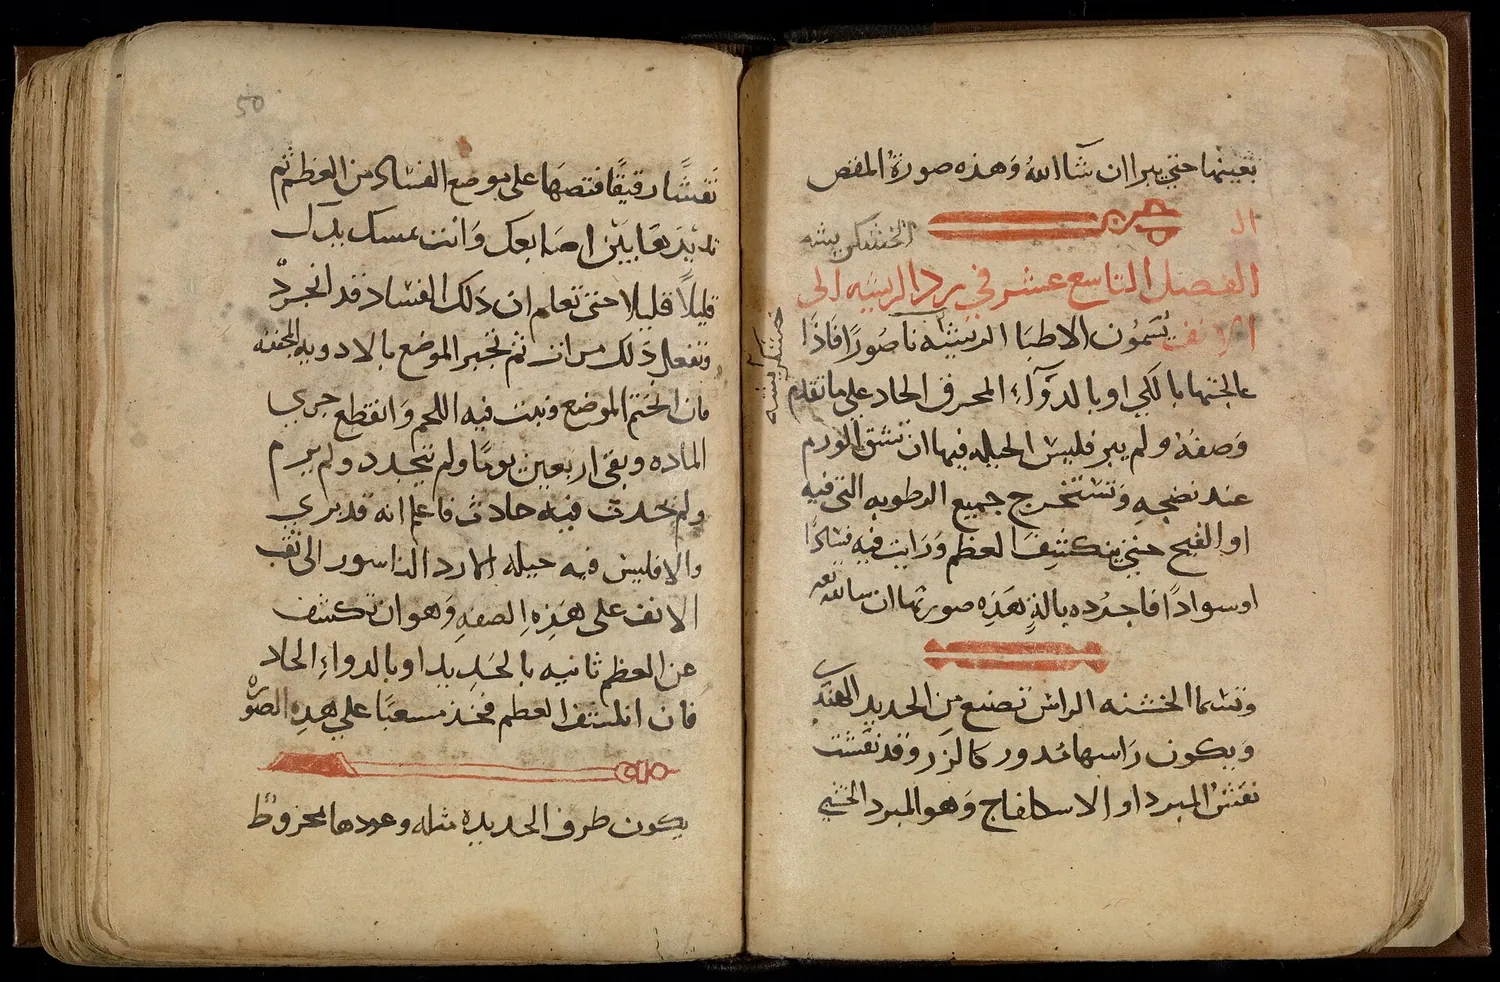 بعينها حتى يبرا ان شآ الله وهذه صورة المقص
الـ
الفصل التاسع عشر في رد الريشه الى
الانف يسمون الاطبا الريشه ناصورا فاذا
عالجتها بالكي او بالدوآء المحرق الحاد على ما تقدم
وصفه ولم يبر فليس الحيله فيها ان تشق الورم
عند نضجه وتستخرج جميع الرطوبه التى فيه
او القيح حتى ينكشف العظم ورايت فيه فسادا
او سوادا فاجرده بالة هذه صورتها ان شا الله تعه
وتسما الخشنه الراس تصنع من الحديد الهندي
ويكون راسها مدور كالزر وقد نقشت
نقش المبرد او الاسكلفاج وهو المبرد الخشبي
50
نقشا رقيقا فتضعها على موضع الفساد من العظم ثم
تديرها بين اصابعك وانت تمسك يدك
قليلا قليلا حتى تعلم ان ذلك الفساد قد انجرد
وتفعل ذلك مرات ثم تجبر الموضع بالادويه المجففه
فان الختم الموضع ونبت فيه اللحم وانقطع جري
الماده وبقى اربعين يوما ولم يتجدد ولم يرم
ولم يحدث فيه حادث فاعلم انه قد بري
والا فليس فيه حيله الا رد الناسور الى ثقب
الانف على هذه الصفه وهو ان تكشف
عن العظم ثانيه بالحديد او بالدواء الحاد
فان انكشف العظم فخذ مسعبا على هذه الصوره
يكون طرف الحديده مثله وعودها مخروط